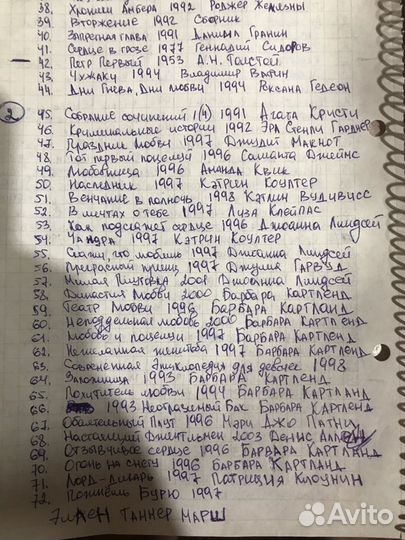 38. Хроники Амбера 1992 Роджер Желязны
39. Вторжение 1992 Сборник
40. Запретная глава 1991 Даниил Гранин
41. Сердце в грозе 1977 Геннадий Сидоров
42. Петр Первый 1953 А.Н. Толстой
43. Чужаки 1994 Владимир
44. Дни Гнева, Дни любви 1994 Роксана Гедеон
2
45. Собрание сочинений 1(4) 1991 Агата Кристи
46. Криминальные истории 1992 Эрл Стенли Гарднер
47. Праздник Любви 1997 Джудит Макнот
48. Тот первый поцелуй 1996 Саманта Джеймс
49. 1996 Аманда Квик
50. Наследник 1997 Кэтрин Коултер
51. Венчание в полночь 1998 Кэтлин Вудивисс
52. В мечтах о тебе 1997 Лиза Клейпас
53. Как подскажет сердце 1996 Джоанна Линдсей
54. Чандра 1997 Кэтрин Коултер
55. Скажи, что любишь 1997 Джоанна Линдсей
56. Прекрасный принц 1997 Джулия Гарвуд
57. Милая Плутовка 2001 Джоанна Линдсей
58. Династия Любви 2000 Барбара Картленд
59. Театр Любви 1998 Барбара Картланд
60. Неподдельная любовь 2000 Барбара Картленд
61. Любовь и поцелуи 1997 Барбара Картленд
62. Нежеланная женитьба 1997 Барбара Картленд
63. Современная Энциклопедия для девочек 1998
64. Заложница 1993 Барбара Картленд
65. Похититель любви 1994 Барбара Картланд
66. 1993 Неотразимый Бак Барбара Картленд
67. Обаятельный Плут 1996 Мэри Джо Патни
68. Настоящий Джентльмен 2003 Денис
69. Отзывчивое сердце 1996 Барбара Картланд
70. Огонь на снегу 1996 Барбара Картланд
71. Лорд-дикарь 1997 Патриция
72. Пожнешь Бурю 1997
Элаен Таннер Марш
Avito